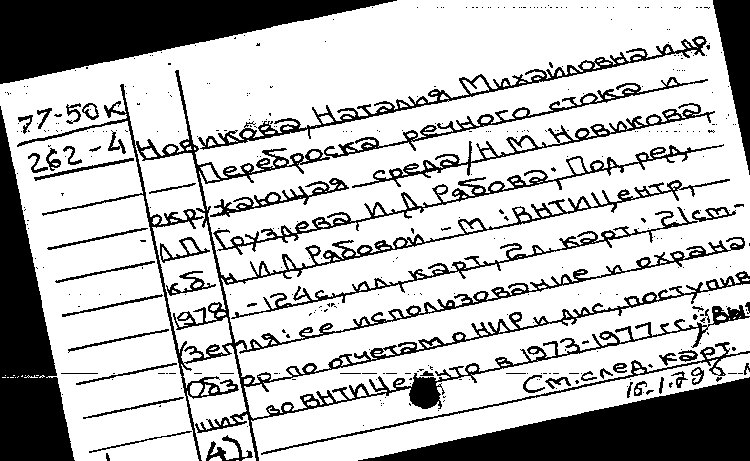 77-50к
262-4
Новикова, Наталия Михайловна и др.
Переброска речного стока и
окружающая среда/Н.М. Новикова,
Л.П. Груздева, И.Д. Рябова; Под ред.
к.б.н. И.Д. Рябовой. - М. : ВНТИЦентр,
1978. - 124с., ил., карт., 2л. карт.; 21см.-
(Земля: ее использование и охрана.
Обзор по отчетам о НИР и дис., поступив
шим во ВНТИЦентр в 1973-1977гг.; Вып
4).
См.след. карт.